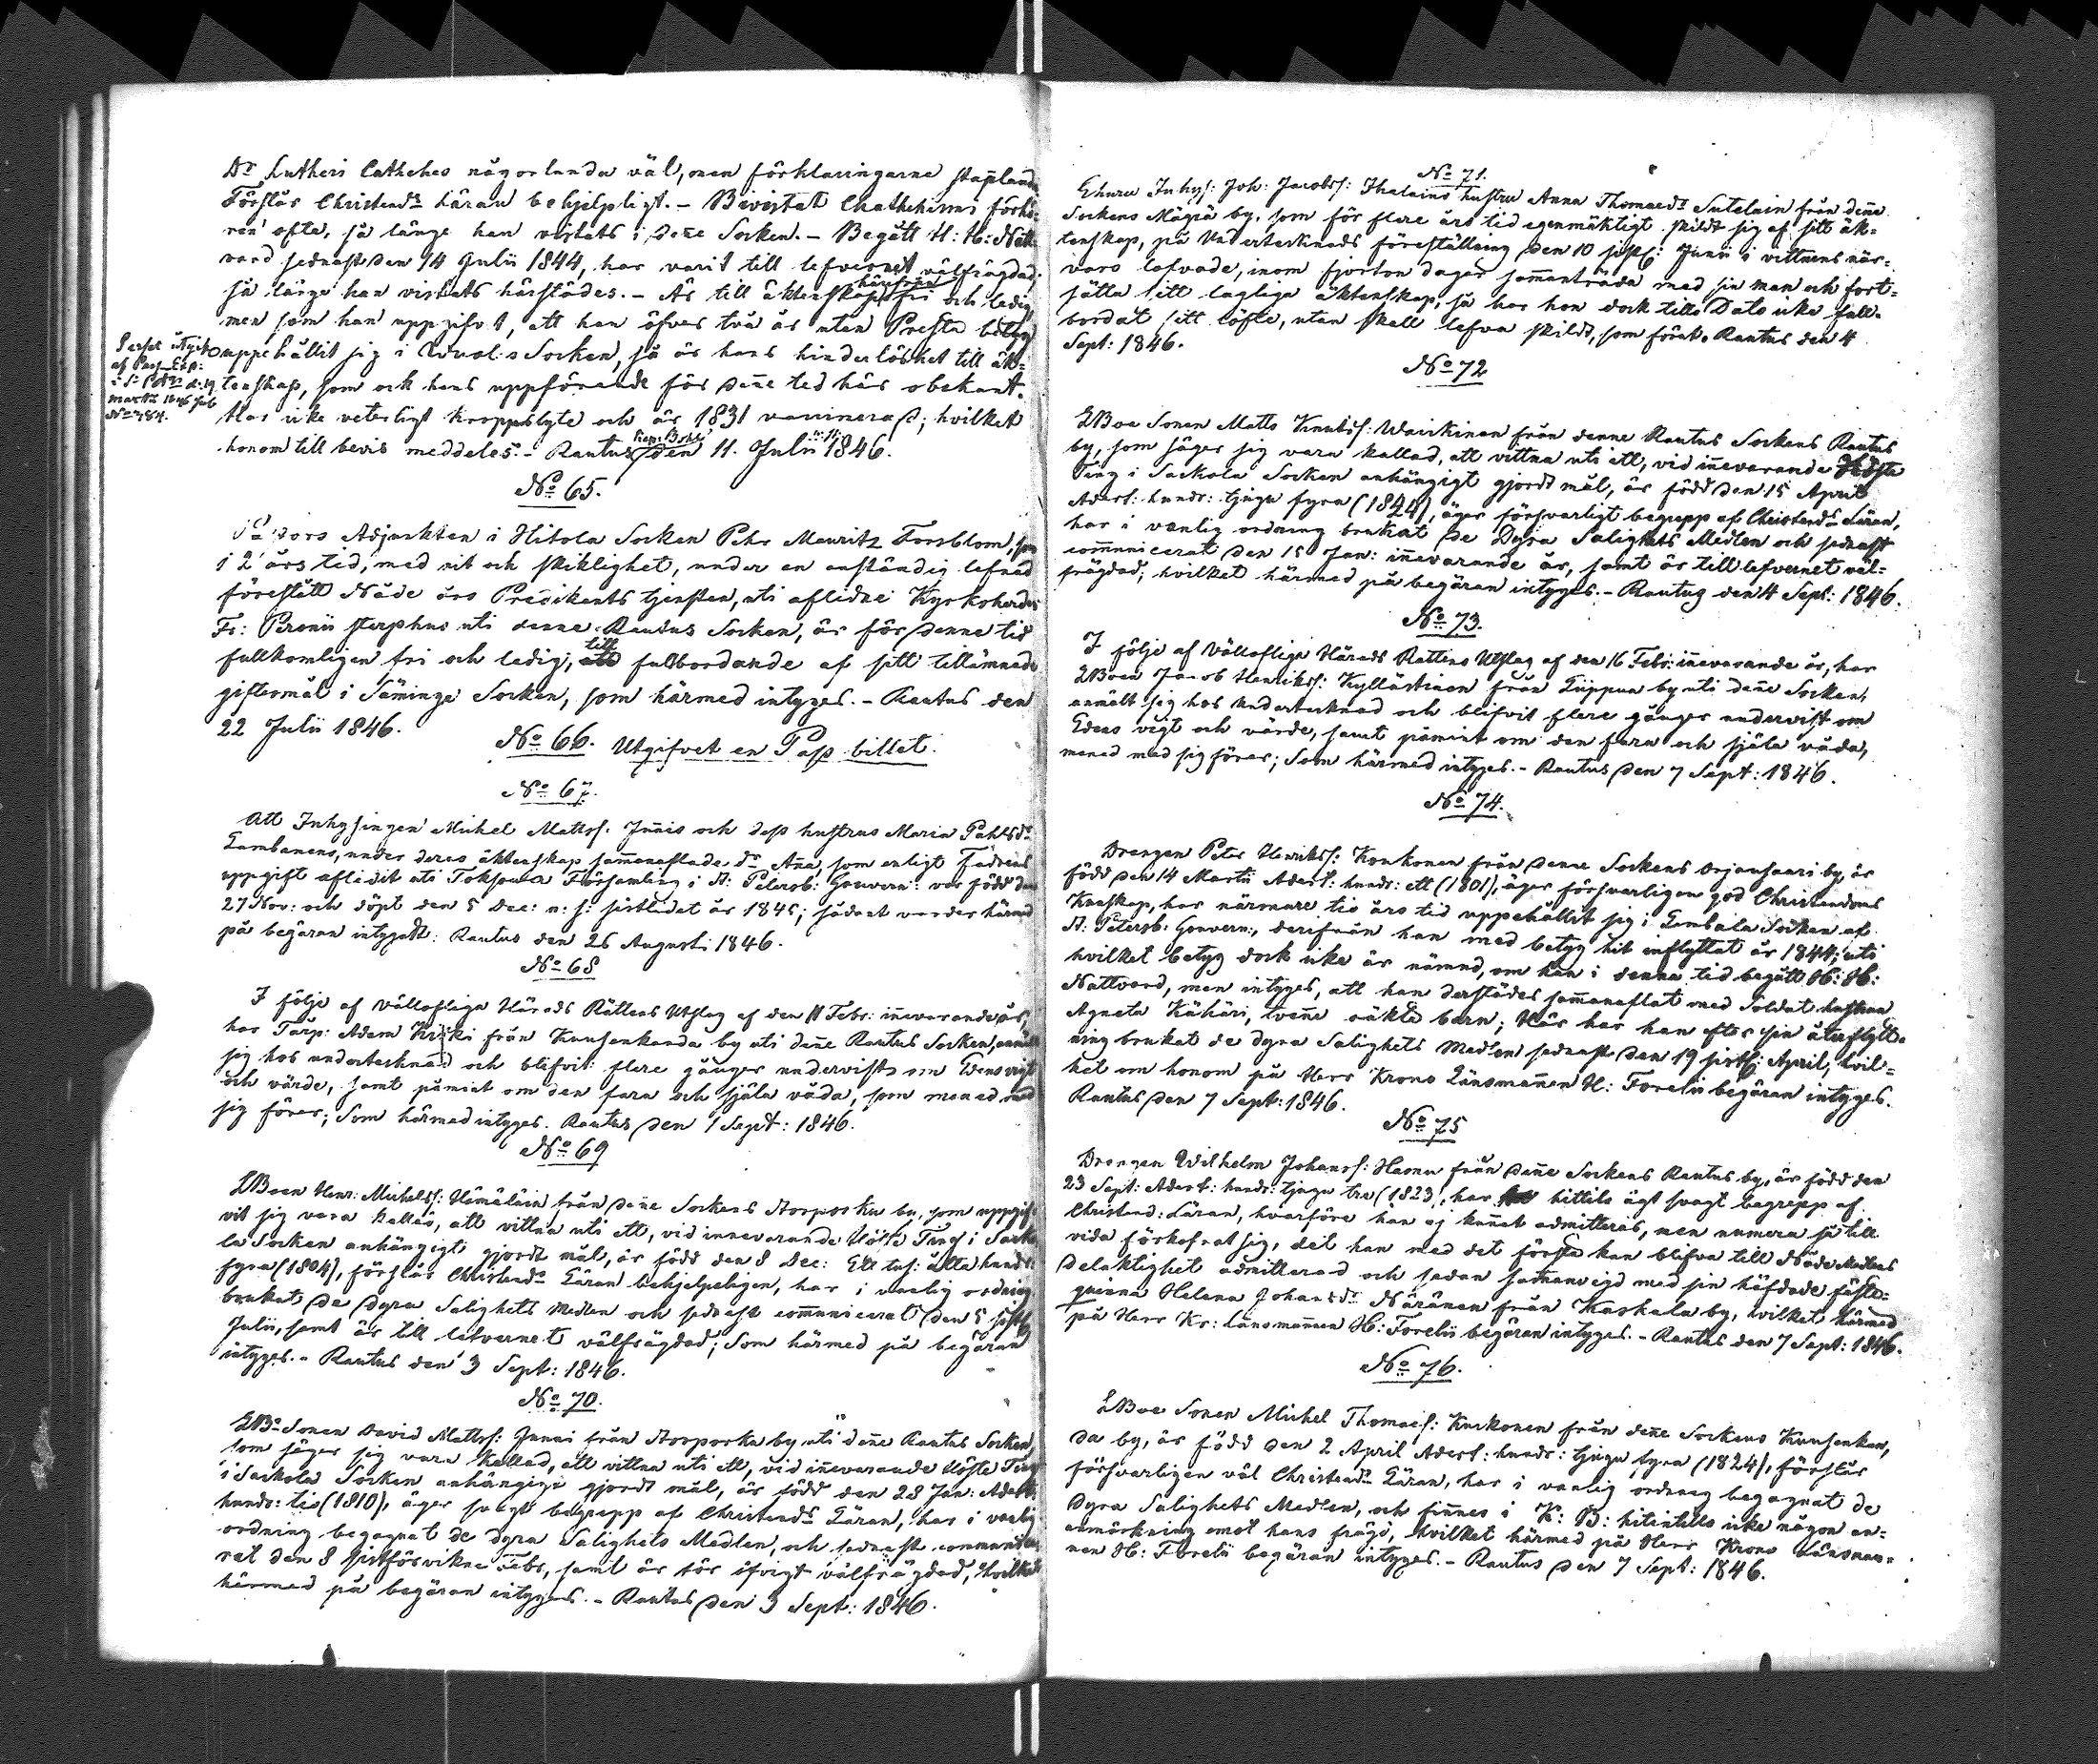 Dr Lutheri Catheches någorlunda väl, men förklaringarne staplande
Förstår Christends Läran behjelpligt. - Bevistat Chatkehismi förhö-
ren ofta, så länge han vistats i denne Socken. - Begått H: H: Natt-
vard sednast den 14 Julii 1844, har varit till lefvernet välfrägdad,
så länge han vistats härstädes. - Är till äktenskap härifrån fri och ledig
men som han uppgifvit, att han öfver två år utan Presta betyg
uppehållit sig i Socken, så är hans hinderlöshet till äk-
tenskap, som ock hans uppförande för denne tid här obekant.
Har icke veterligt kroppslyte och är 1831 vaccinerad; hvilket
honom till bevis meddeles. - Rautus den 11. Julii 1846.
af Pass Exp:
No 784.
No 65.
Adjunkten i Hitola Socken Pehr Mauritz Forsblom, som
i 2 års tid, med nit och skiklighet, under en anständig lefnad
förestått Nåde års Predikants tjensten, uti aflidne Kyrkoherden
Fr: Peronii sterbhus uti denne Rautus Socken, är för denne tid
fullkomligen fri och ledig, till fullbordande af sitt tillämnade
giftermål i Säminge Socken, som härmed intyges. - Rautus den
22 Julii 1846.
No 66. Utgifvet en Pass billet.
No 67.
Att Inhysingen Michel Mattss. Junnis och dess hustrus Maria Pahlsdr
Lambanens, under deras äktenskap sammanaflade dr Anna, som enligt Fadrens
uppgift aflidit uti Toksowa Församling i St: Petersb: Gouvern: var född den
27 Nov: och döpt den 5 Dec: n: s: sistledet år 1845; sådant varder härmed
på begäran intygadt: Rautus den 26 Augusti 1846.
No 68
I följe af Vällofliga Härads Rättens Utslag af den 11 Febr: innevarande år,
har Torp: Adam Kiiski från Kuusenkanda by uti denne Rautus Socken, anmält
sig hos undertecknad och blifvit flere gånger undervist om Edens vigt
och värde, samt påmint om den fara och själa våda, som mened med
sig förer; Som härmed intyges. Rautus den 1 Sept: 1846.
No 69
LBoen Henr: Michelss: Hämäläin från denne Sockens Horposku by, som uppgif-
vit sig vara kallad, att vittna uti ett, vid innevarande Höste Ting i Sacko-
la Socken anhängigt gjordt mål, är född den 8 Dec: Ett tus: åtta hundr:
fyra (1804), förstår Christendr Läran behjelpeligen, har i vanlig ordning
brukat de dyra Salighets Medlen och sednast communicerat den 5 sistl:
Julii, samt är till lefvernet välfrägdad; Som härmed på begäran
intyges. - Rautus den 3 Sept: 1846.
No 70.
LBo Sonen David Mattss: Junni från Horposku by uti denne Rautus Socken,
som säger sig vara kallad, att vittna uti ett, vid innevarande Höste Ting
i Sackola Socken anhängigt gjordt mål, är född den 28 Jan: Adert:
hundr: tio (1810), äger svagt begrepp af Christends Läran, har i vanlig
ordning begagnat de dyra Salighets Medlen, och sednast communice-
rat den 8 sistförvikne Febr, samt är för öfrigt välfrägdad, hvilket
härmed på begäran intyges. - Rautus den 3 Sept: 1846.
No 71.
Ehuru Inhys: Joh: Jacobss: Ihalains hustru Anna Thomaedr Sutelain från denne
Sockens Mägrä by, som för flere års tid egenmäktigt skildt sig af sitt äk-
tenskap, på Undertecknads föreställning den 10 sistl: Junii i vittnens när-
varo lofvade, inom fjorton dagar sammanträda med sin man och fort-
sätta sitt lagliga äktenskap, så har hon dock tills Dato icke full-
bordat sitt löfte, utan skall lefva skildt, som förut. Rautus den 4
Sept: 1846.
No 72
LBoe Sonen Matts Knutss: Wäiskinen från denne Rautus Sockens Rautus
by, som säger sig vara kallad, att vittna uti ett, vid innevarande Höste
Ting i Sackola Socken anhängigt gjordt mål, är född den 15 April
Adert: hundr: tjugu fyra (1824), äger försvarligt begrepp af Christends Läran,
har i vanlig ordning brukat de Dyra Salighets Medlen och sednast
communicerat den 15 Jan: innevarande år, samt är till lefvernet väl-
frägdad; hvilket härmed på begäran intyges. - Rautus den 4 Sept: 1846.
No 73.
I följe af Vällofliga Härads Rättens Utslag af den 16 Febr: innevarande år, har
LBoen Jacob Henrikss: Kyllästinen från Liippua by uti denne Socken,
anmält sig hos undertecknad och blifvit flere gånger undervist om
Edens vigt och värde, samt påmint om den fara och själa våda,
mened med sig förer; Som härmed intyges. - Rautus den 7 Sept: 1846.
No 74.
Drengen Peter Henrikss: Konkonen från denne Sockens Orjansaari by, är
född den 14 Martii Adert: hundr: ett (1801), äger försvarligen god Christendoms
Kunskap, har närmare tio års tid uppehållit sig i Lembala Socken af
St: Petersb: Gouvern:, derifrån han med betyg hit inflyttat år 1844; uti
hvilket betyg dock icke är nämnd, om han i denna tid begått H: H:
Nattvard, men intyges, att han derstädes sammanaflat med Soldat hustrun
Agneta Kähäri, tvenne oäkta barn; Här har han efter sin återflytt-
ning brukat de dyra Salighets Medlen sednast den 19 sistl: April, hvil-
ket om honom på Herr Krono Länsmannen H: Forelii begäran intyges.
Rautus den 7 Sept: 1846.
No 75
Drengen Wilhelm Johanss: Hasnu från denne Sockens Rautus by, är född den
23 Sept: Adert: hundr: tjugu tre (1823, har hittils ägt svagt begrepp af
Christend: Läran, hvarföre han ej kunnat admitteras, men numera så till
vida förkofrat sig, det han med det första kan blifva till Nåde Medlens
Delaktighet admitterad och sedan sammanvigd med sin häfdade fäste-
qvinna Helena Johansdr Näränen från Kaskala by, hvilket härmed
på Herr Kr: Länsmannen H: Forelii begäran intyges. - Rautus den 7 Sept: 1846.
No 76.
LBoe Sonen Michel Thomaes: Kurkonen från denne Sockens Kuusenkan,
da by, är född den 2 April Adert: hundr: tjugu fyra (1824), förstår
försvarligen väl Christendr Läran, har i vanlig ordning begagnat de
Dyra Salighets Medlen, och finnes i K: B: hitintills icke någon an-
märkning emot hans frägd, hvilket härmed på Herr Krono Länsman-
nen H: Forelii begäran intyges. - Rautus den 7 Sept: 1846.